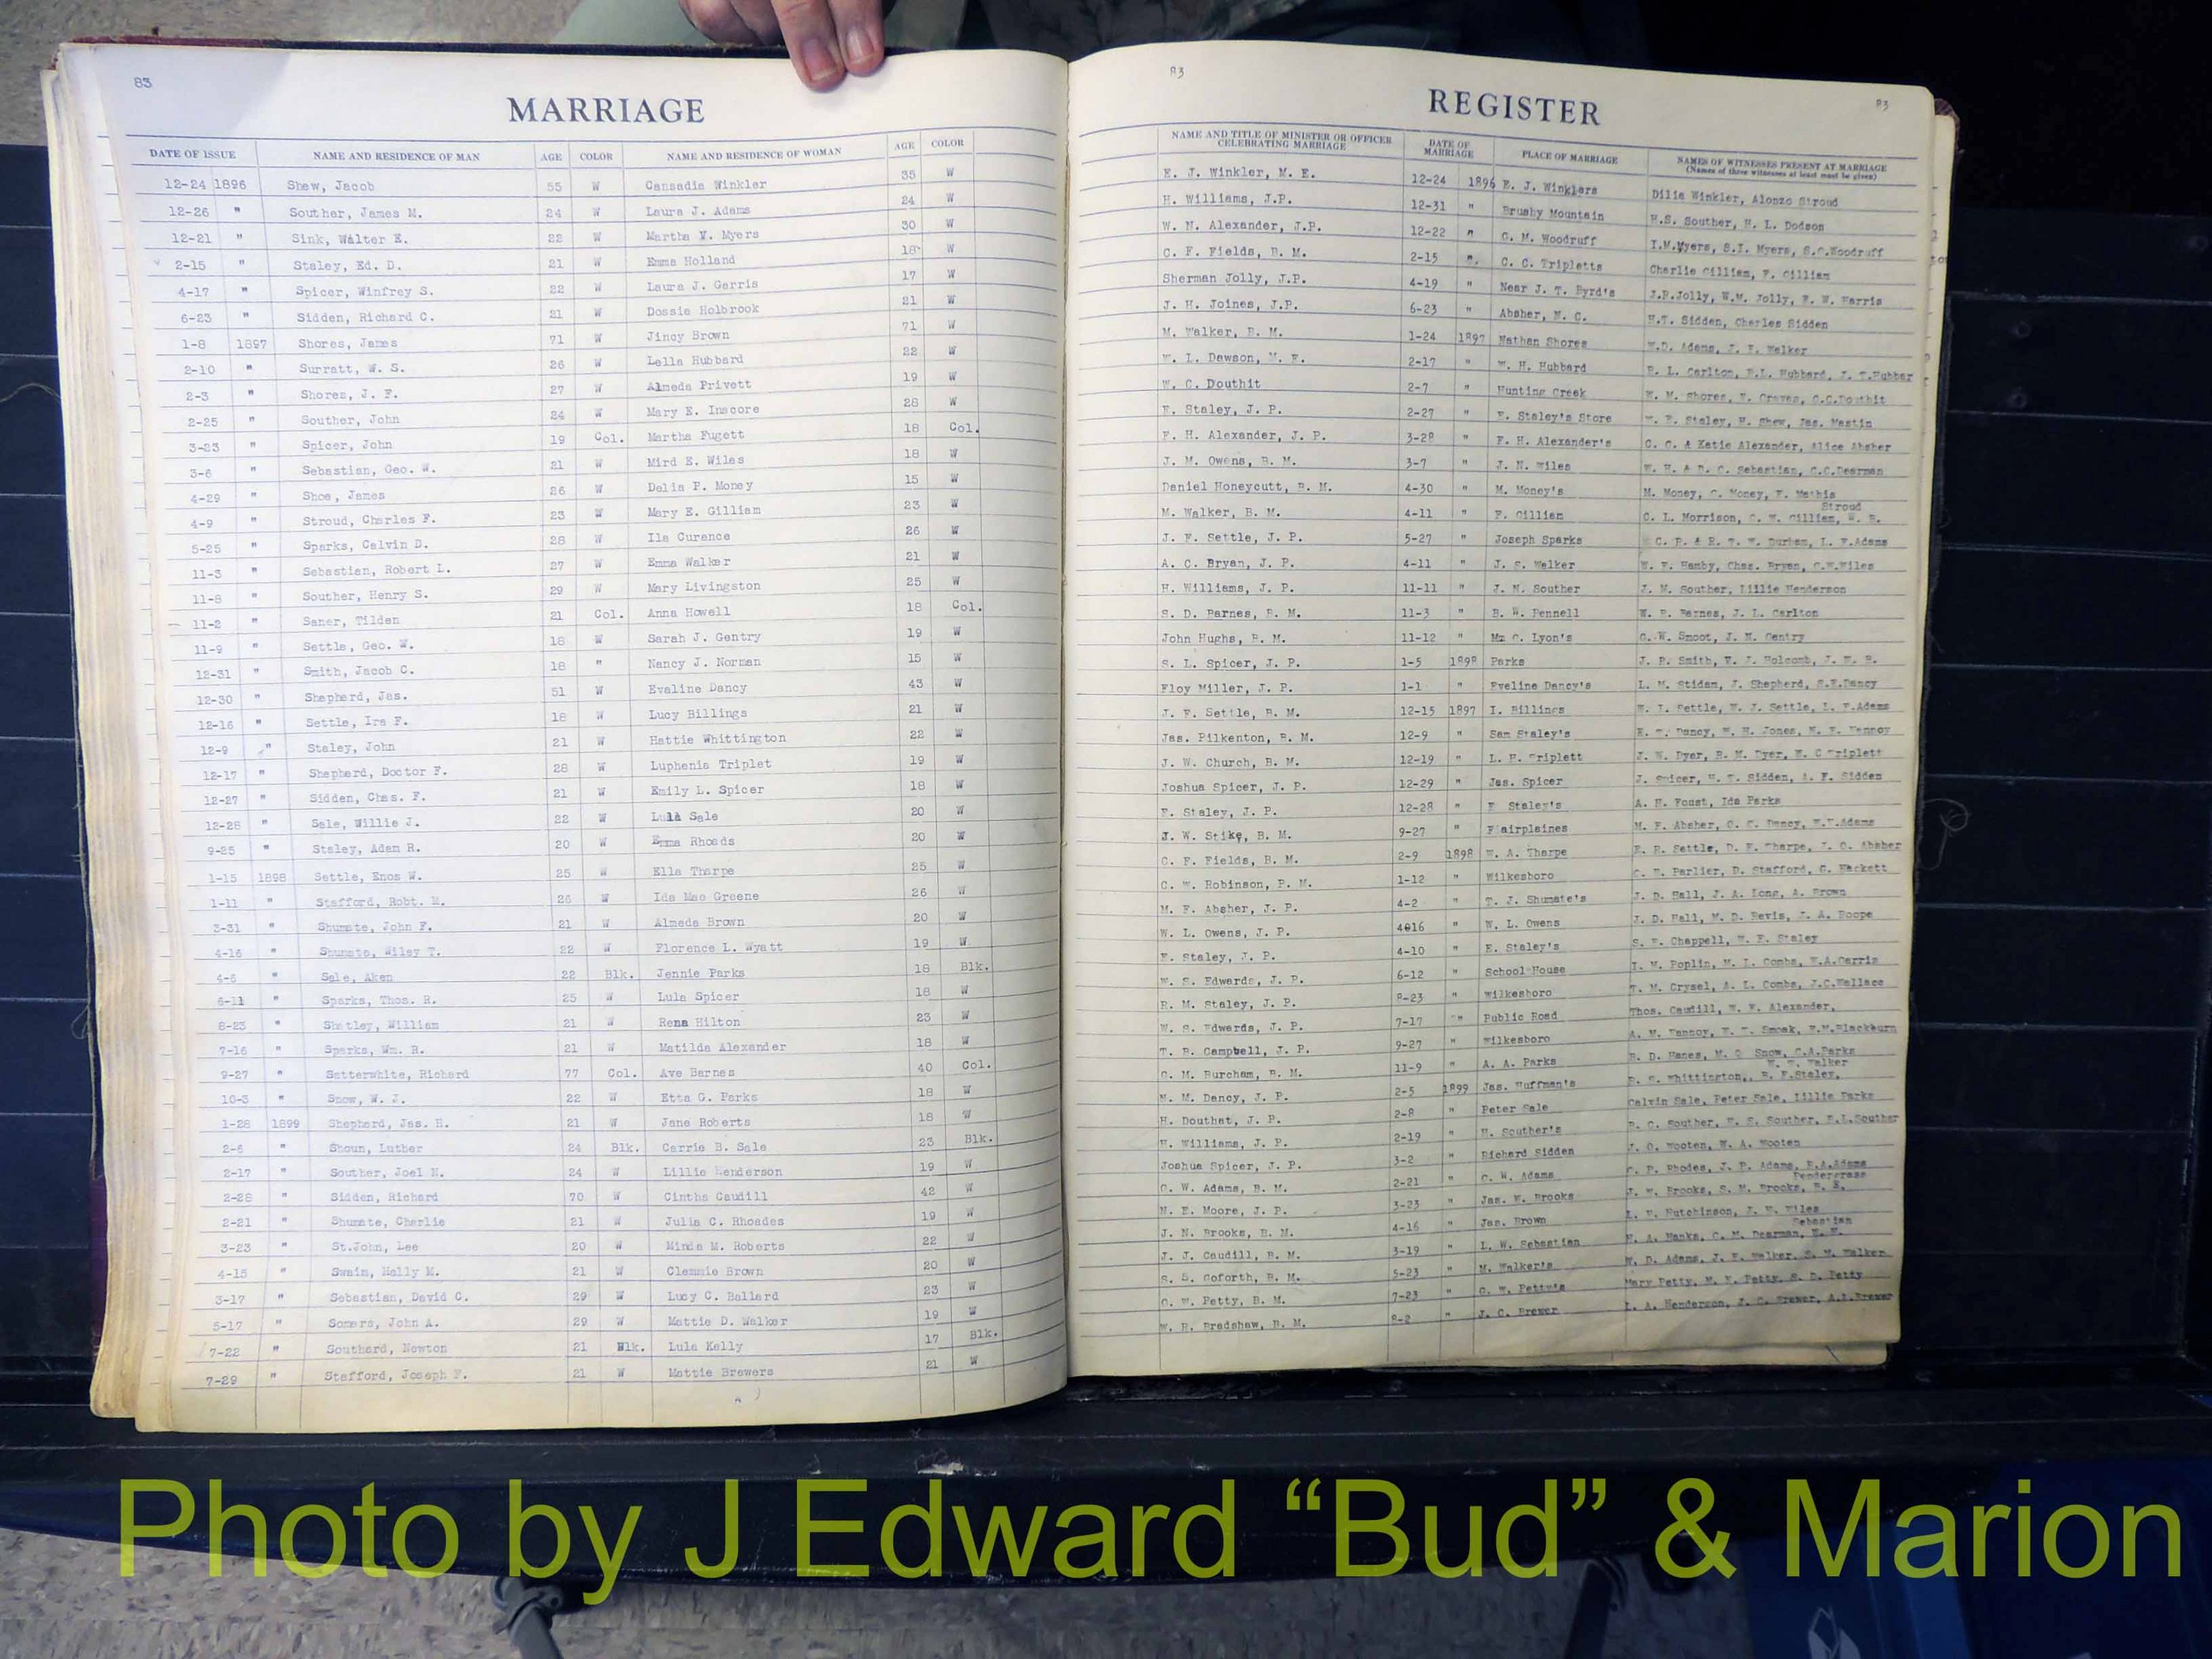 83
MARRIAGE
DATE OF ISSUE NAME AND RESIDENCE OF MAN AGE COLOR NAME AND RESIDENCE OF WOMAN AGE COLOR
12-24 1896 Shew, Jacob 55 W Cansadia Winkler 35 W
12-26 " Souther, James M. 24 W Laura J. Adams 24 W
12-21 " Sink, Walter E. 22 W Martha V. Myers 30 W
2-15 " Staley, Ed. D. 21 W Emma Holland 18 W
4-17 " Spicer, Winfrey S. 22 W Laura J. Garris 17 W
6-23 " Sidden, Richard C. 21 W Dossie Holbrook 21 W
1-8 1897 Shores, James 71 W Jincy Brown 71 W
2-10 " Surratt, W. S. 26 W Lella Hubbard 22 W
2-3 " Shores, J. F. 27 W Almeda Privett 19 W
2-25 " Souther, John 24 W Mary E. Inscore 28 W
3-23 " Spicer, John 19 Col. Martha Fugett 18 Col.
3-6 " Sebastian, Geo. W. 21 W Mird E. Wiles 18 W
4-29 " Shoe, James 26 W Delia P. Money 15 W
4-9 " Stroud, Charles F. 23 W Mary E. Gilliam 23 W
5-25 " Sparks, Calvin D. 28 W Ila Curence 26 W
11-3 " Sebastian, Robert L. 27 W Emma Walker 21 W
11-8 " Souther, Henry S. 29 W Mary Livingston 25 W
11-2 " Saner, Tilden 21 Col. Anna Howell 18 Col.
11-9 " Settle, Geo. W. 18 W Sarah J. Gentry 19 W
12-31 " Smith, Jacob C. 18 " Nancy J. Norman 15 W
12-30 " Shepherd, Jas. 51 W Evaline Dancy 43 W
12-16 " Settle, Ira F. 18 W Lucy Billings 21 W
12-9 " Staley, John 21 W Hattie Whittington 22 W
12-17 " Shepherd, Doctor F. 28 W Luphenia Triplet 19 W
12-27 " Sidden, Chas. F. 21 W Emily L. Spicer 18 W
12-28 " Sale, Willie J. 22 W Lula Sale 20 W
9-25 " Staley, Adam R. 20 W Emma Rhoads 20 W
1-15 1898 Settle, Enos W. 25 W Ella Tharpe 25 W
1-11 " Stafford, Robt. M. 26 W Ida Mae Greene 26 W
3-31 " Shumate, John F. 21 W Almeda Brown 20 W
4-16 " Shumate, Wiley T. 22 W Florence L. Wyatt 19 W
4-6 " Sale, Aken 22 Blk. Jennie Parks 18 Blk.
6-11 " Sparks, Thos. R. 25 W Lula Spicer 18 W
8-23 " Shatley, William 21 W Rena Hilton 23 W
7-16 " Sparks, Wm. R. 21 W Matilda Alexander 18 W
9-27 " Satterwhite, Richard 77 Col. Ave Barnes 40 Col.
10-3 " Snow, W. J. 22 W Etta G. Parks 18 W
1-28 1899 Shepherd, Jas. H. 21 W Jane Roberts 18 W
2-6 " Shoun, Luther 24 Blk. Carrie B. Sale 23 Blk.
2-17 " Souther, Joel N. 24 W Lillie Henderson 19 W
2-28 " Sidden, Richard 70 W Cintha Caudill 42 W
2-21 " Shumate, Charlie 21 W Julia C. Rhoades 19 W
3-23 " St.John, Lee 20 W Minda M. Roberts 22 W
4-15 " Swaim, Hally M. 21 W Clemmie Brown 20 W
3-17 " Sebastian, David C. 29 W Lucy C. Ballard 23 W
5-17 " Somers, John A. 29 W Mattie D. Walker 19 W
7-22 " Southard, Newton 21 Blk. Lula Kelly 17 Blk.
7-29 " Stafford, Joseph F. 21 W Mattie Brewers 21 W
83 83
REGISTER
NAME AND TITLE OF MINISTER OR OFFICER CELEBRATING MARRIAGE DATE OF MARRIAGE PLACE OF MARRIAGE NAMES OF WITNESSES PRESENT AT MARRIAGE
(Names of three witnesses at least must be given)
E. J. Winkler, M. E. 12-24 1896 E. J. Winklers Dilia Winkler, Alonzo Stroud
H. Williams, J.P. 12-31 " Brushy Mountain H.S. Souther, H. L. Dodson
W. N. Alexander, J.P. 12-22 " C. M. Woodruff I.M.Myers, S.I. Myers, S.C.Woodruff
C. F. Fields, B. M. 2-15 " C. C. Tripletts Charlie Gilliam, F. Gilliam
Sherman Jolly, J.P. 4-19 " Near J. T. Byrd's J.P.Jolly, W.M. Jolly, E. W. Harris
J. H. Joines, J.P. 6-23 " Absher, N. C. H.T. Sidden, Charles Sidden
M. Walker, B. M. 1-24 1897 Nathan Shores W.D. Adams, J. F. Walker
W. L. Dawson, M. E. 2-17 " W. H. Hubbard R. L. Carlton, B.L. Hubbard, J. T.Hubbar
W. C. Douthit 2-7 " Hunting Creek E. M. Shores, E. Graves, C.C.Douthit
E. Staley, J. P. 2-27 " E. Staley's Store W. F. Staley, H. Shew, Jas. Mastin
F. H. Alexander, J. P. 3-28 " F. H. Alexander's C. C. & Katie Alexander, Alice Absher
J. M. Owens, B. M. 3-7 " J. N. Wiles W. H. & D. C. Sebastian, C.C.Dearman
Daniel Honeycutt, B. M. 4-30 " M. Money's M. Money, C. Money, F. Mathis
M. Walker, B. M. 4-11 " F. Gilliam C. L. Morrison, C. W. Gilliam, W. B. Stroud
J. F. Settle, J. P. 5-27 " Joseph Sparks C. R. & R. T. W. Durham, L. F.Adams
A. C. Bryan, J. P. 4-11 " J. S. Walker W. F. Hamby, Chas. Bryan, C.W.Wiles
H. Williams, J. P. 11-11 " J. N. Souther J. M. Souther, Lillie Henderson
S. D. Barnes, B. M. 11-3 " B. W. Pennell W. B. Barnes, J. L. Carlton
John Hughs, B. M. 11-12 " Mz C. Lyon's G. W. Smoot, J. M. Gentry
S. L. Spicer, J. P. 1-5 1898 Parks J. P. Smith, W. J. Holcomb, J. W. B.
Floy Miller, J. P. 1-1 " Eveline Dancy's L. M. Stidam, J. Shepherd, S.E.Dancy
J. F. Settle, B. M. 12-15 1897 I. Billings W. I. Settle, W. J. Settle, L. F.Adams
Jas. Pilkenton, B. M. 12-9 " Sam Staley's E. T. Dancy, W. H. Jones, N. E. Vannoy
J. W. Church, B. M. 12-19 " L. H. Triplett J. W. Dyer, B. M. Dyer, W. C Triplett
Joshua Spicer, J. P. 12-29 " Jas. Spicer J. Spicer, H. T. Sidden, A. F. Sidden
E. Staley, J. P. 12-28 " E Staley's A. H. Foust, Ida Parks
J. W. Stike, B. M. 9-27 " Flairplaines M. F. Absher, C. C. Dancy, W.T.Adams
C. F. Fields, B. M. 2-9 1898 W. A. Tharpe E. R. Settle, D. F. Tharpe, J. C. Absher
C. W. Robinson, P. M. 1-12 " Wilkesboro C. E. Parlier, D. Stafford, G. Hackett
M. F. Absher, J. P. 4-2 " T. J. Shumate's J. D. Hall, J. A. Long, A. Brown
W. L. Owens, J. P. 4016 " W. L. Owens J. D. Hall, M. D. Revis, J. A. Poope
E. Staley, J. P. 4-10 " E. Staley's S. E. Chappell, W. F. Staley
W. S. Edwards, J. P. 6-12 " School House I. M. Poplin, M. L. Combs, W.A.Garris
R. M. Staley, J. P. 8-23 " Wilkesboro T. M. Crysel, A. L. Combs, J.C.Wallace
W. S. Edwards, J. P. 7-17 " Public Road Thos. Caudill, W. F. Alexander,
T. B. Campbell, J. P. 9-27 " Wilkesboro A. M. Vannoy, E. T. Smoak, F.M.Blackburn
G. M. Burcham, B. M. 11-9 " A. A. Parks B. D. Hanes, M. Q Snow, C.A.Parks
N. M. Dancy, J. P. 2-5 1899 Jas. Huffman's R. S. Whittington,, B. F.Staley, W. T. Walker
H. Douthat, J. P. 2-8 " Peter Sale Calvin Sale, Peter Sale, Lillie Parks
H. Williams, J. P. 2-19 " H. Souther's B. C. Souther, H. S. Souther, E.L.Souther
Joshua Spicer, J. P. 3-2 " Richard Sidden J. O. Wooten, W. A. Wooten
C. W. Adams, B. M. 2-21 " C. W. Adams C. P. Rhodes, J. P. Adams, E.A.Adams
N. E. Moore, J. P. 3-23 " Jas. W. Brooks J. W. Brooks, S. M. Brooks, R. E. Pendergrass
J. N. Brooks, B. M. 4-16 " Jas. Brown L. V. Hutchinson, J. W. Wiles
J. J. Caudill, B. M. 3-19 " L. W. Sebastian F. A. Hanks, C. M. Dearman, Sebastian
S. S. Goforth, B. M. 5-23 " M. Walker's W. D. Adams, J. F. Walker, S. M. Walker
C. W. Petty, B. M. 7-23 " C. W. Petty's Mary Petty, M. E. Petty, S. D. Petty
W. R. Bradshaw, B. M. 8-2 " J. C. Brewer L. A. Henderson, J. C. Brewer, A.L.Brewer
Photo by J Edward “Bud” & Marion